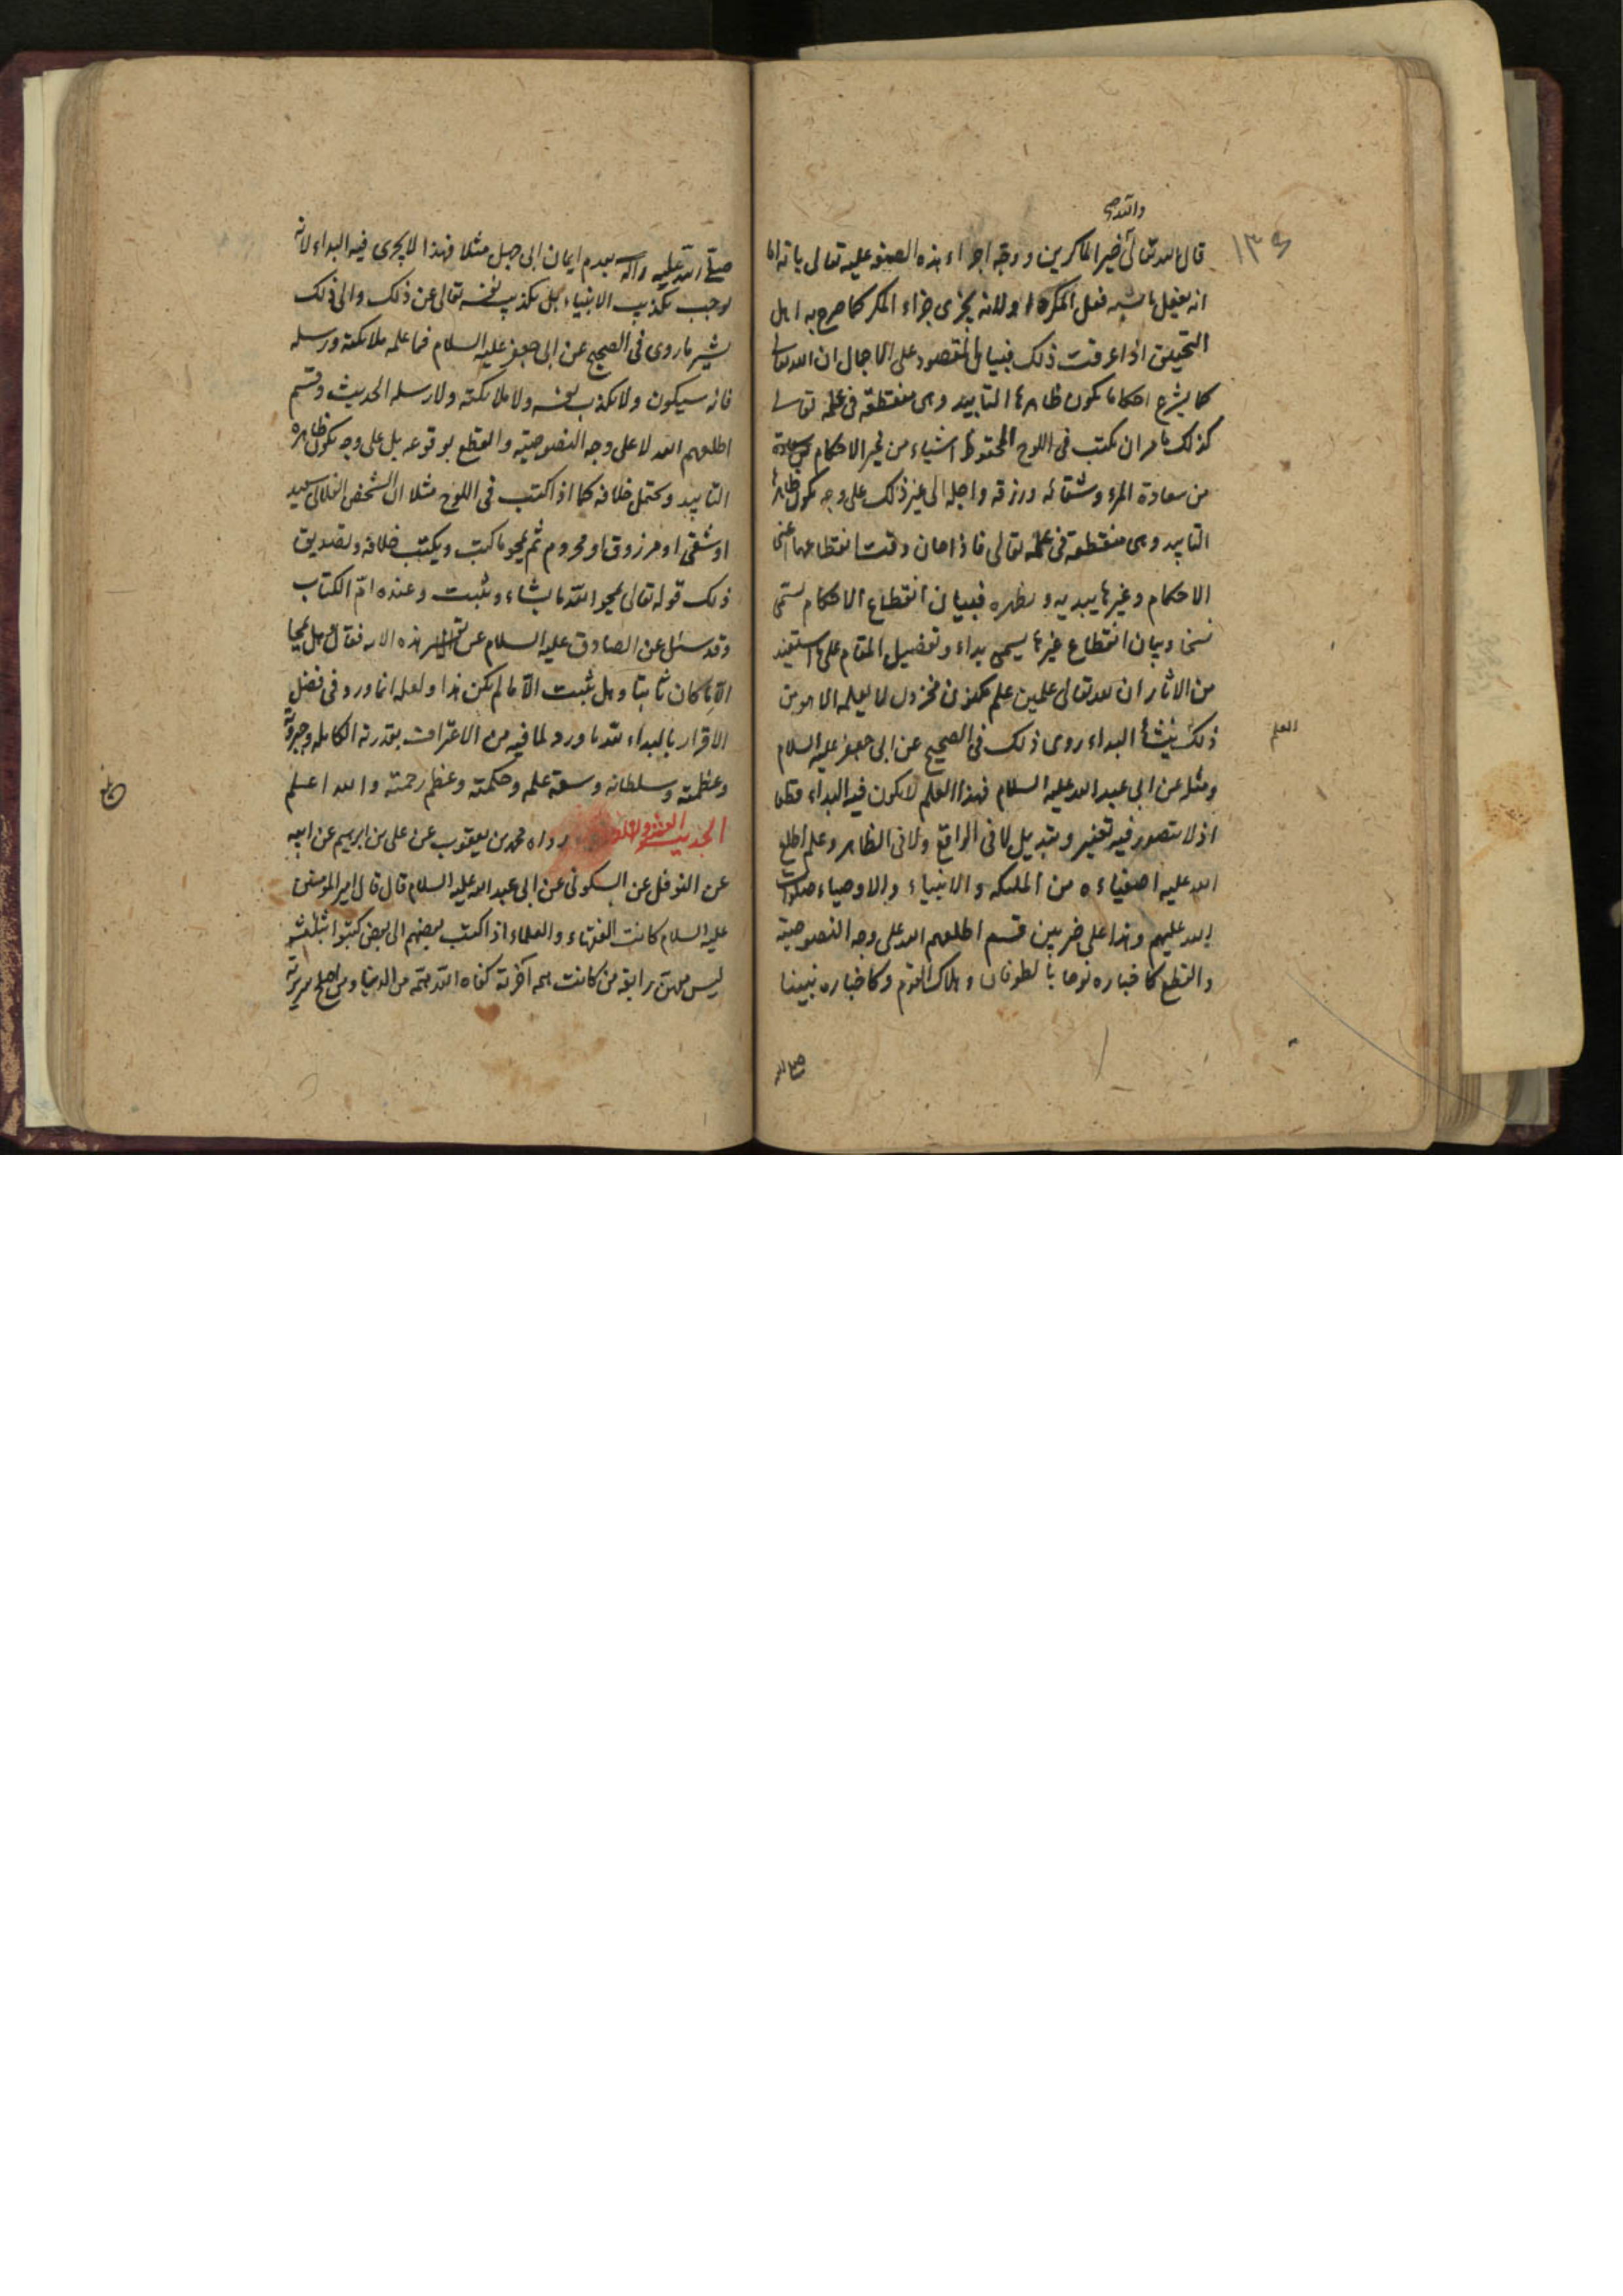 والله صح
١٣٤
قال الله تعالى خير الماكرين ووجه اجراء هذه الصفة عليه تعالى بانه اما
انه يفعل ما شبه فعل المكرة او لانه يجزى جزاء المكر كما صرح به اهل
التحقيق اذا عرفت ذلك فبيان المقصود على الاجمال ان الله تعالى
كما يشرع احكاما يكون ظاهرها التابيد وهى منقطعة فى علمه تعالى
كذلك يامر ان يكتب فى اللوح المحفوظ اشياء من غير الاحكام
من سعادة المرء وشقائه ورزقه واجله الى غير ذلك على وجه يكون ظاهرها
التابيد وهى منقطعة فى علمه تعالى فاذا حان وقت انقطاعها اعنى
الاحكام وغيرها يبديه ويظهره فبيان انقطاع الاحكام يسمى
نسخا وبيان انقطاع غيرها يسمى بداء وتفصيل المقام على ما استفيد
من الاثار ان لله تعالى علمين علم مكنون مخزون لا يعلمه الا هو من
ذلك ينشأ البداء روى ذلك فى الصحيح عن ابى جعفر عليه السلام
العلم
ومثله عن ابى عبد الله عليه السلام فهذا العلم لا يكون فيه البداء قطعا
اذ لا يتصور فيه تغير وتبديل لا فى الواقع ولا فى الظاهر وعلم اطلع
الله عليه اصفياءه من الملئكه والانبياء والاوصياء صلوات
الله عليهم وهذا على ضربين قسم اطلعهم الله على وجه النصوصية
والقطع كاخباره نوحا بالطوفان وهلاك القوم وكاخباره نبينا
صلى الله
صلى الله عليه واله بعدم ايمان ابى جهل مثلا فهذا لا يجرى فيه البداء لانه
يوجب تكذيب الانبياء بل تكذيب نفسه تعالى عن ذلك والى ذلك
يشير ما روى فى الصحيح عن ابى جعفر عليه السلام فما علمه ملائكته ورسله
فانه سيكون ولا يكذب نفسه ولا ملائكته ولا رسله الحديث وقسم
اطلعهم الله لا على وجه النصوصية والقطع بوقوعه بل على وجه يكون ظاهره
التابيد ويحتمل خلافه كما اذا كتب فى اللوح مثلا ان الشخص الفلانى سعيد
او شقى او مرزوق او محروم ثم يمحو ما كتب ويكتب خلافه وتصديق
ذلك قوله تعالى يمحو الله ما يشاء ويثبت وعنده ام الكتاب
وقد سئل عن الصادق عليه السلام عن تفسير هذه الايه فقال هل يمحا
الا ما كان ثابتا وهل يثبت الا ما لم يكن هذا ولعله انما ورد فى فضل
الاقرار بالبداء لله ما ورد لما فيه من الاعتراف بقدرته الكامله وجبروته
وعظمته وسلطانه وسعة علمه وحكمته وعظم رحمته والله اعلم
الحديث العشرون رواه محمد بن يعقوب عن على بن ابرهيم عن ابيه
عن النوفلى عن السكونى عن ابى عبد الله عليه السلام قال قال امير المؤمنين
عليه السلام كانت الفقهاء والعلماء اذا كتب بعضهم الى بعض كتبوا بثلثة
ليس معهن رابعة من كانت همه آخرته كفاه الله همه من الدنيا ومن اصلح سريرته